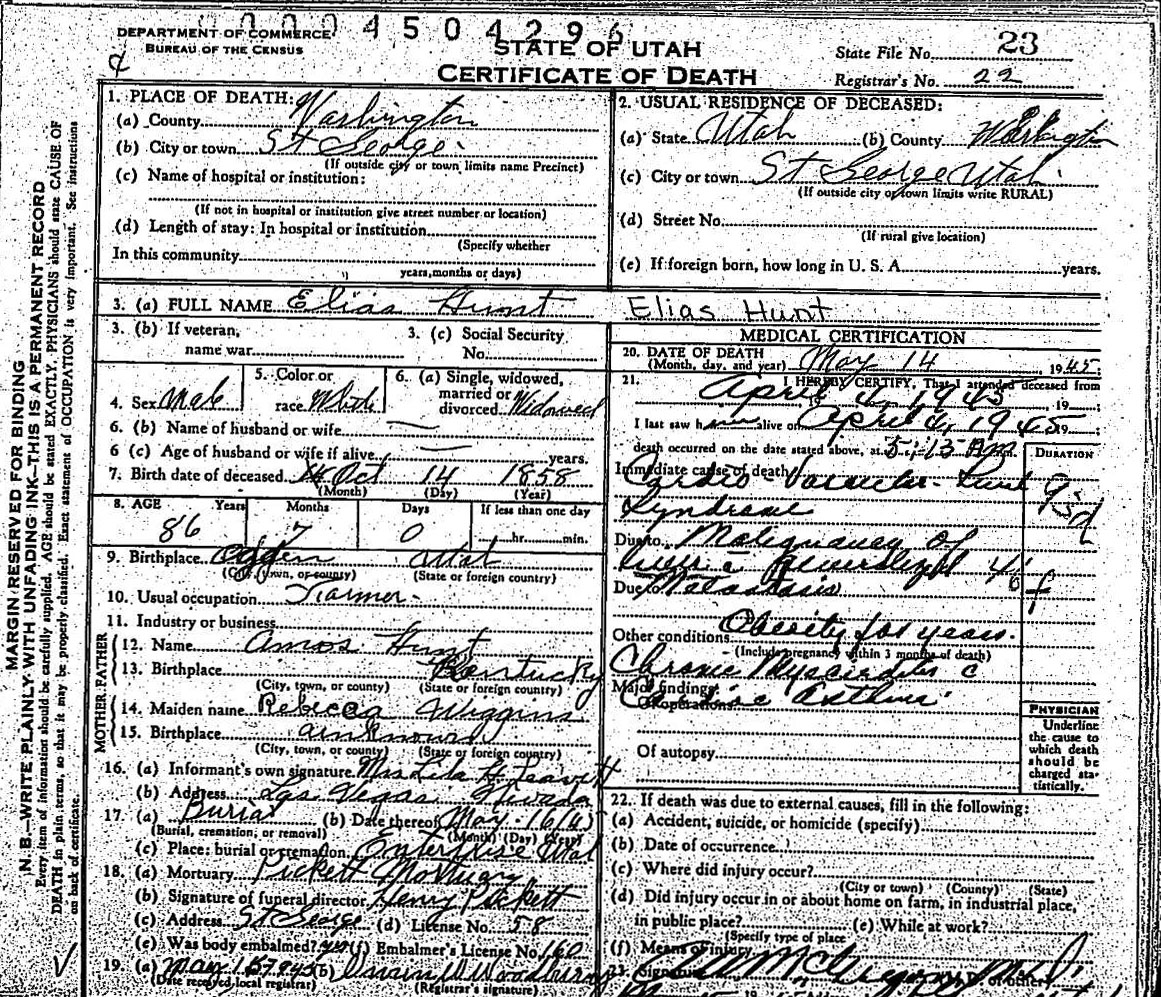 DEPARTMENT OF COMMERCE
BUREAU OF THE CENSUS
00004504296
STATE OF UTAH
CERTIFICATE OF DEATH
State File No. 23
Registrar's No. 22
MARGIN RESERVED FOR BINDING
N. B.—WRITE PLAINLY WITH UNFADING INK—THIS IS A PERMANENT RECORD
Every item of information should be carefully supplied. AGE should be stated EXACTLY. PHYSICIANS should state CAUSE OF
DEATH in plain terms, so that it may be properly classified. Exact statement of OCCUPATION is very important. See instructions
on back of certificate.
1. PLACE OF DEATH:
(a) County Washington
(b) City or town St George
(If outside city or town limits name Precinct)
(c) Name of hospital or institution:
(If not in hospital or institution give street number or location)
(d) Length of stay: In hospital or institution
(Specify whether
In this community
years, months or days)
2. USUAL RESIDENCE OF DECEASED:
(a) State Utah (b) County Washington
(c) City or town St George Utah
(If outside city or town limits write RURAL)
(d) Street No.
(If rural give location)
(e) If foreign born, how long in U. S. A. years.
3. (a) FULL NAME Elias Hunt Elias Hunt
3. (b) If veteran,
name war
3. (c) Social Security
No.
4. Sex Male
5. Color or
race White
6. (a) Single, widowed,
married or
divorced Widowed
6. (b) Name of husband or wife
6 (c) Age of husband or wife if alive years.
7. Birth date of deceased Oct 14 1858
(Month) (Day) (Year)
8. AGE Years Months Days If less than one day
86 7 0 hr. min.
9. Birthplace Ogden Utah
(City, town, or county) (State or foreign country)
10. Usual occupation Farmer
11. Industry or business
FATHER
12. Name Amos Hunt
13. Birthplace Kentucky
(City, town, or county) (State or foreign country)
MOTHER
14. Maiden name Rebecca Wiggins
15. Birthplace unknown
(City, town, or county) (State or foreign country)
16. (a) Informant's own signature Mrs Lila H Leavitt
(b) Address Las Vegas Nevada
17. (a) Burial (b) Date thereof May 16 45
(Burial, cremation, or removal) (Month) (Day) (Year)
(c) Place: burial or cremation Enterprise Utah
18. (a) Mortuary Pickett Mortuary
(b) Signature of funeral director Henry Pickett
(c) Address St George (d) License No. 58
(e) Was body embalmed? yes (f) Embalmer's License No. 160
19. (a) May 15 1945 (b) Woodbury
(Date received local registrar) (Registrar's signature)
MEDICAL CERTIFICATION
20. DATE OF DEATH
(Month, day, and year) May 14 1945
21. I HEREBY CERTIFY, That I attended deceased from
April 4, 1945 19
I last saw him alive on April 4, 1945 19
death occurred on the date stated above, at 5:15 A.m.
DURATION
Immediate cause of death
Cardio-Vascular-
Syndrome
Due to Malignancy of
Due to Metastasis
Other conditions Obesity for years.
(Include pregnancy within 3 months of death)
Chronic Myocarditis c
Major findings:
Of operations
Cardiac asthma
Of autopsy
PHYSICIAN
Underline
the cause to
which death
should be
charged sta-
tistically.
22. If death was due to external causes, fill in the following:
(a) Accident, suicide, or homicide (specify)
(b) Date of occurrence
(c) Where did injury occur?
(City or town) (County) (State)
(d) Did injury occur in or about home on farm, in industrial place,
in public place? (e) While at work?
(Specify type of place
(f) Means of injury
23. Signature McGregor M.D. or other